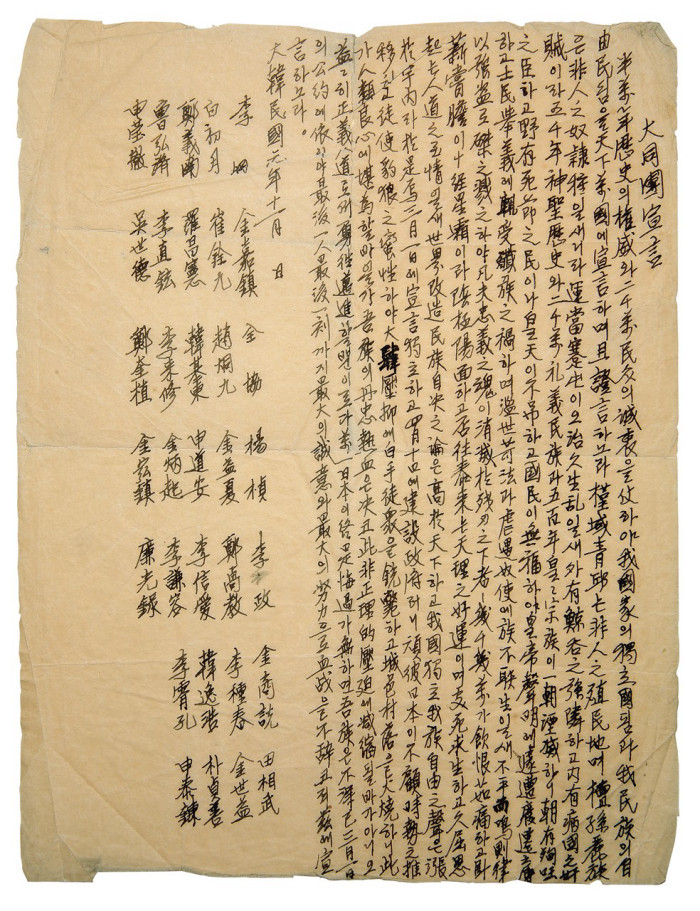 大同團宣言
半萬年歷史의權威와二千萬民衆의誠衷을仗하야我國家의獨立國됨과我民族의自
由民됨을天下萬國에宣言하며且證言하노라槿域靑邱난非人之殖民地며檀孫麗族
은非人之奴隷種일새니라運當蹇屯이오治久生亂일새外有鯨呑之强隣하고內有病國之奸
賊이라五千年神聖歷史와二千萬礼義民族과五百年皇皇宗族이一朝湮滅하니朝有殉國
之臣하고野有死節之民이나皇天이不弔하고國民이無福하야皇帝聲明에遽遭廢遷之辱
하고士民擧義에輒受殲族之禍하며濫世苛法과虐遇奴使에族不聊生일새不平而鳴則律
以强盜로磔之戮之하야凡夫忠義之魂이消滅於残刃之下者ㅣ幾千幾萬가飮恨茹痛하고臥
薪嘗膽이十經星霜이라陰極陽回하고否往泰來난天理之好運이며支死求生하고久屈思
起난人道之至情일새世界改造民族自决之論은高於天下하고我國獨立我族自由之聲은漲
於宇內라於是焉三月一日에宣言獨立하고四月十日에建設政府러니頑彼日本이不顧時勢之推
移하고徒使豹狼之蠻性하야大肆壓抑에白手徒衆을銃斃하고城邑村落을火燒하니此
가人類良心에堪爲할바일가吾族의丹忠熱血은决코此非正理的壓迫에減縮될바가아니오
益益히正義人道로써勇往邁進할뿐이로다萬一日本이終是悔過가無하면吾族은不得已三月一日
의公約에依하야最後一人最後一刻까지最大의誠意와最大의努力으로血战을不辭코져玆에宣
言하노라。
大韓民國元年十一月 日
李堈 金嘉鎭 全協 楊楨 李政 金商說 田相武
白初月 崔銓九 趙炯九 金益夏 鄭卨教 李種春 金世益
鄭義南 羅昌憲 韓基東 申道安 李信愛 韓逸浩 朴貞善
魯弘濟 李直鉉 李來修 金炳起 李謙容 李霄孔 申泰鍊
申瑩徹 吳世德 鄭奎植 金宏鎭 廉光錄